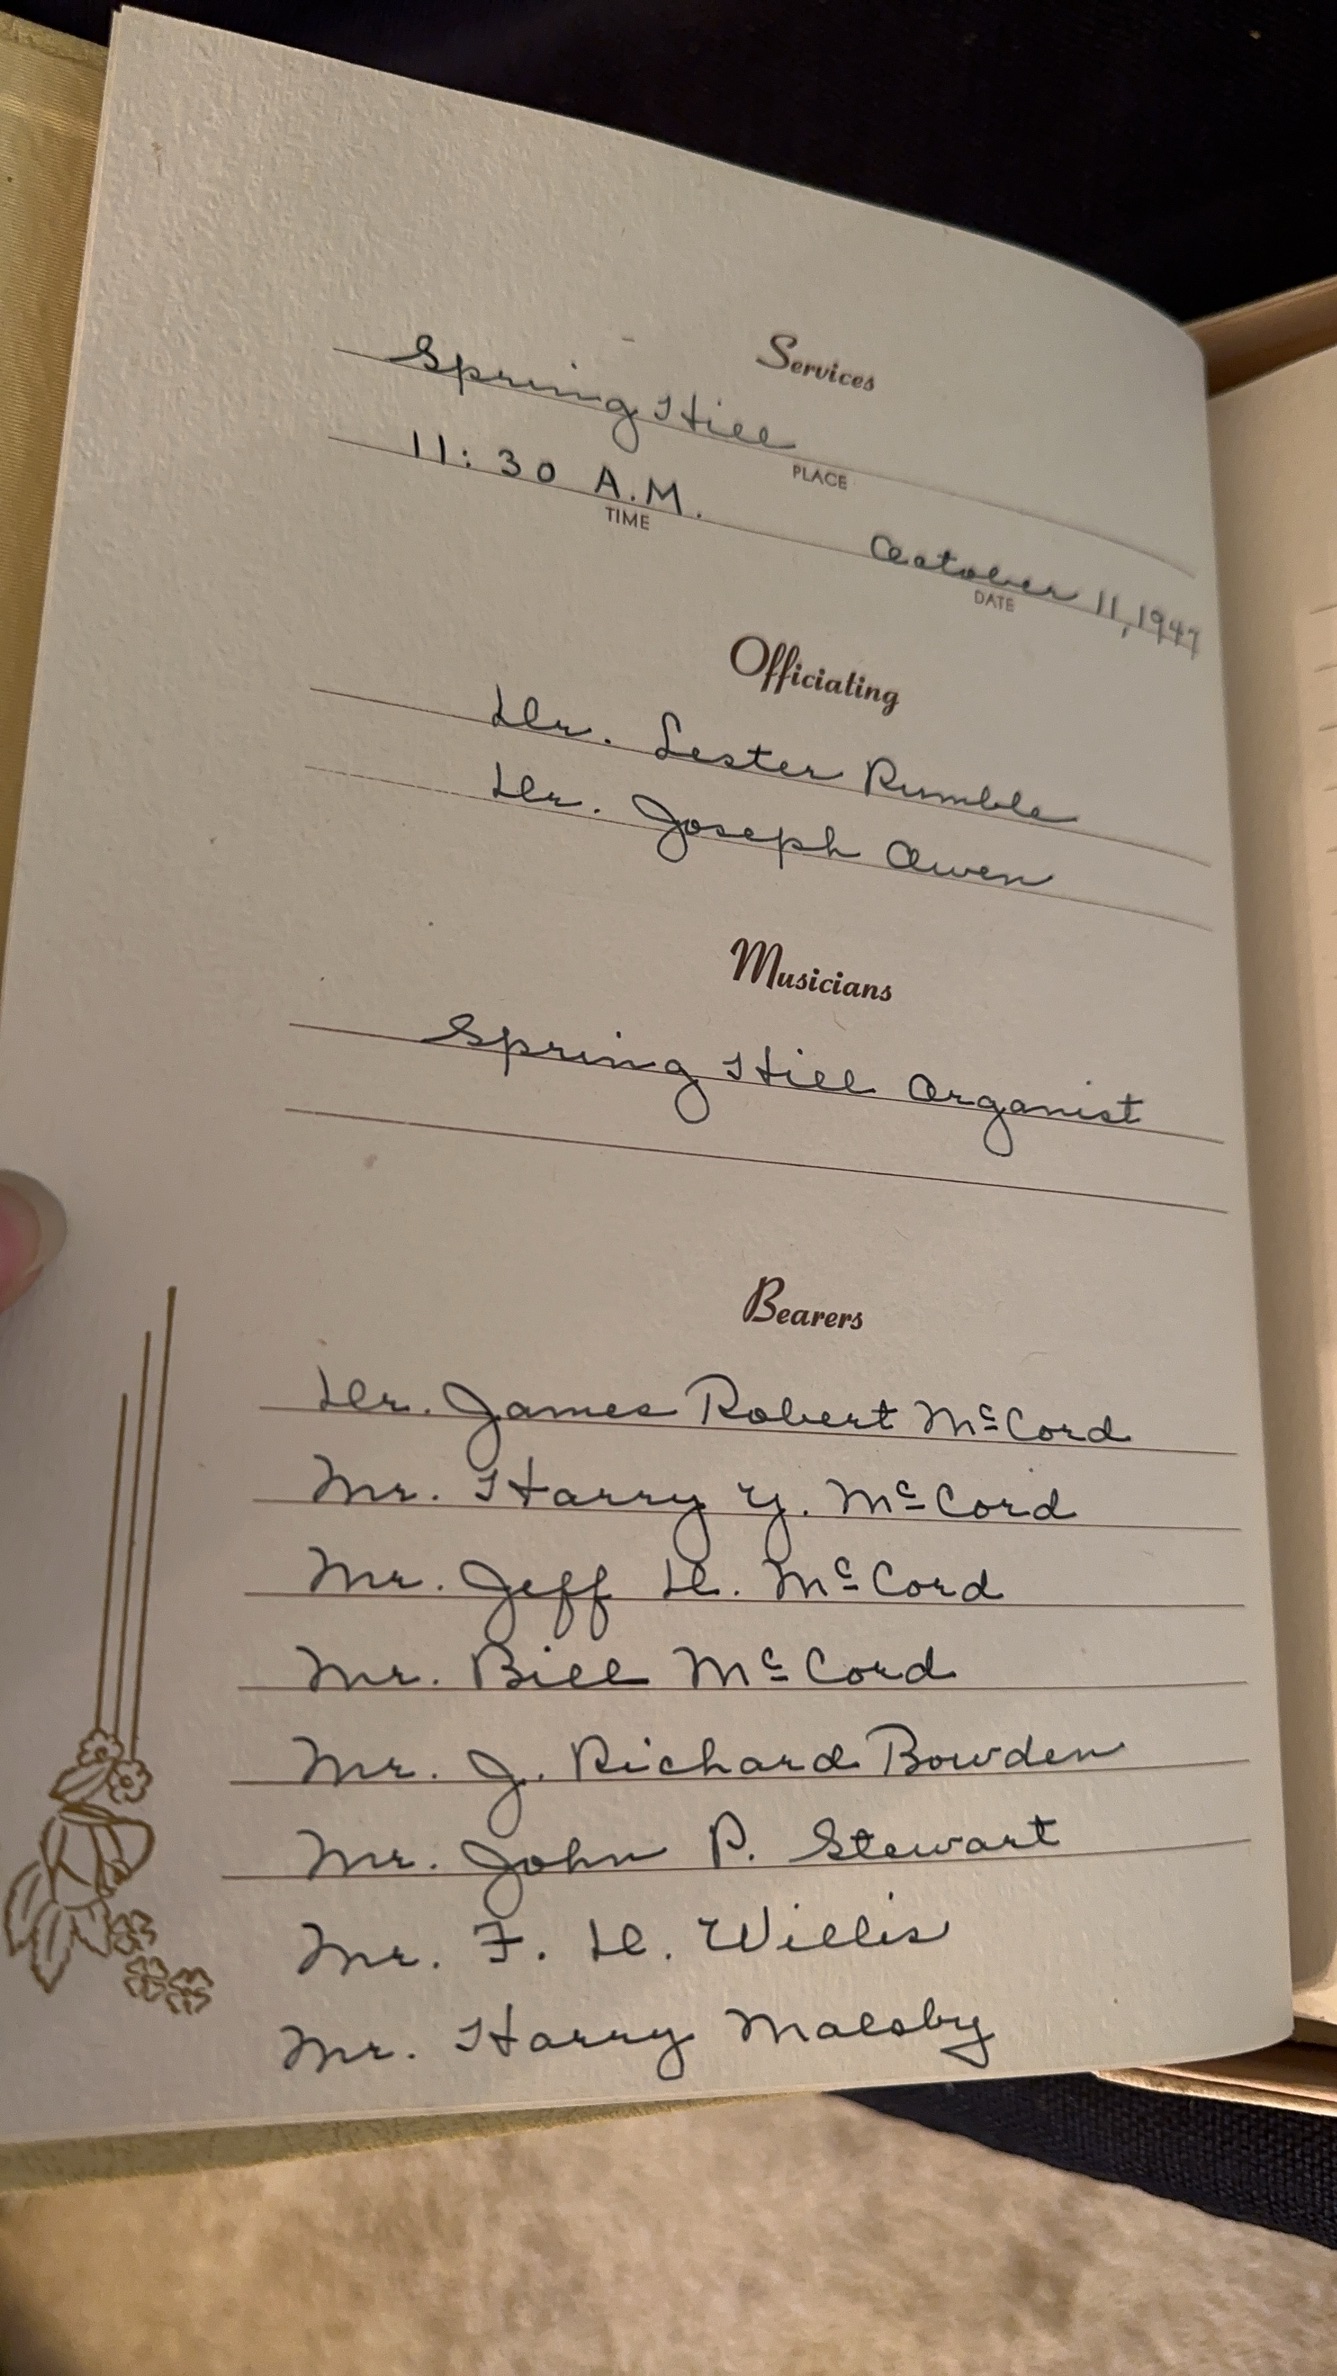 Services
Spring Hill
PLACE
11:30 A.M. October 11, 1947
TIME DATE
Officiating
Dr. Lester Rumble
Dr. Joseph Owen
Musicians
Spring Hill Organist
Bearers
Dr. James Robert McCord
Mr. Harry Y. McCord
Mr. Jeff D. McCord
Mr. Bill McCord
Mr. J. Richard Bowden
Mr. John P. Stewart
Mr. F. D. Willis
Mr. Harry Malsby